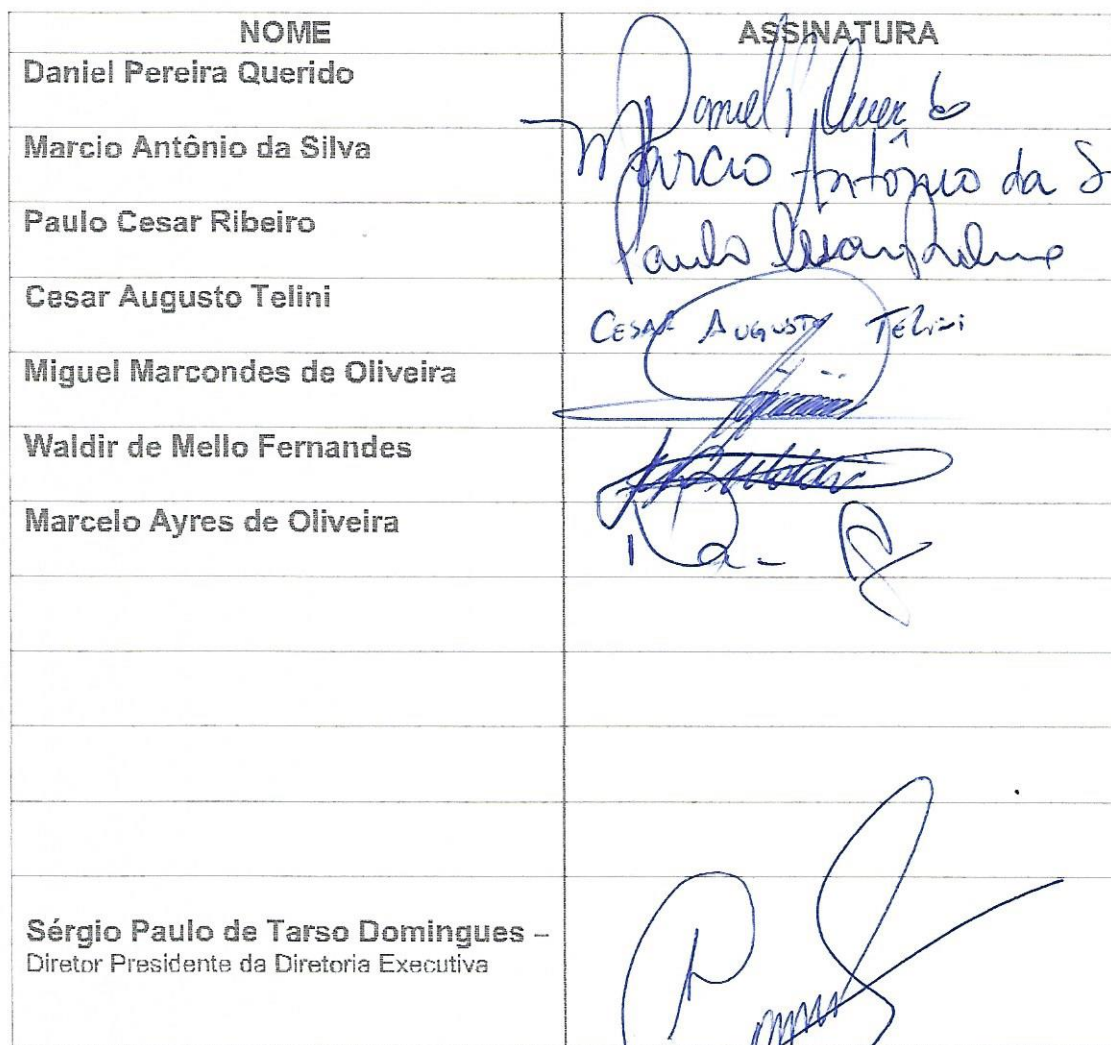 NOME ASSINATURA
Daniel Pereira Querido
Marcio Antônio da Silva Marcio Antônio da S
Paulo Cesar Ribeiro Paulo Cesar
Cesar Augusto Telini CESAR AUGUSTO TELINI
Miguel Marcondes de Oliveira
Waldir de Mello Fernandes
Marcelo Ayres de Oliveira
Sérgio Paulo de Tarso Domingues –
Diretor Presidente da Diretoria Executiva